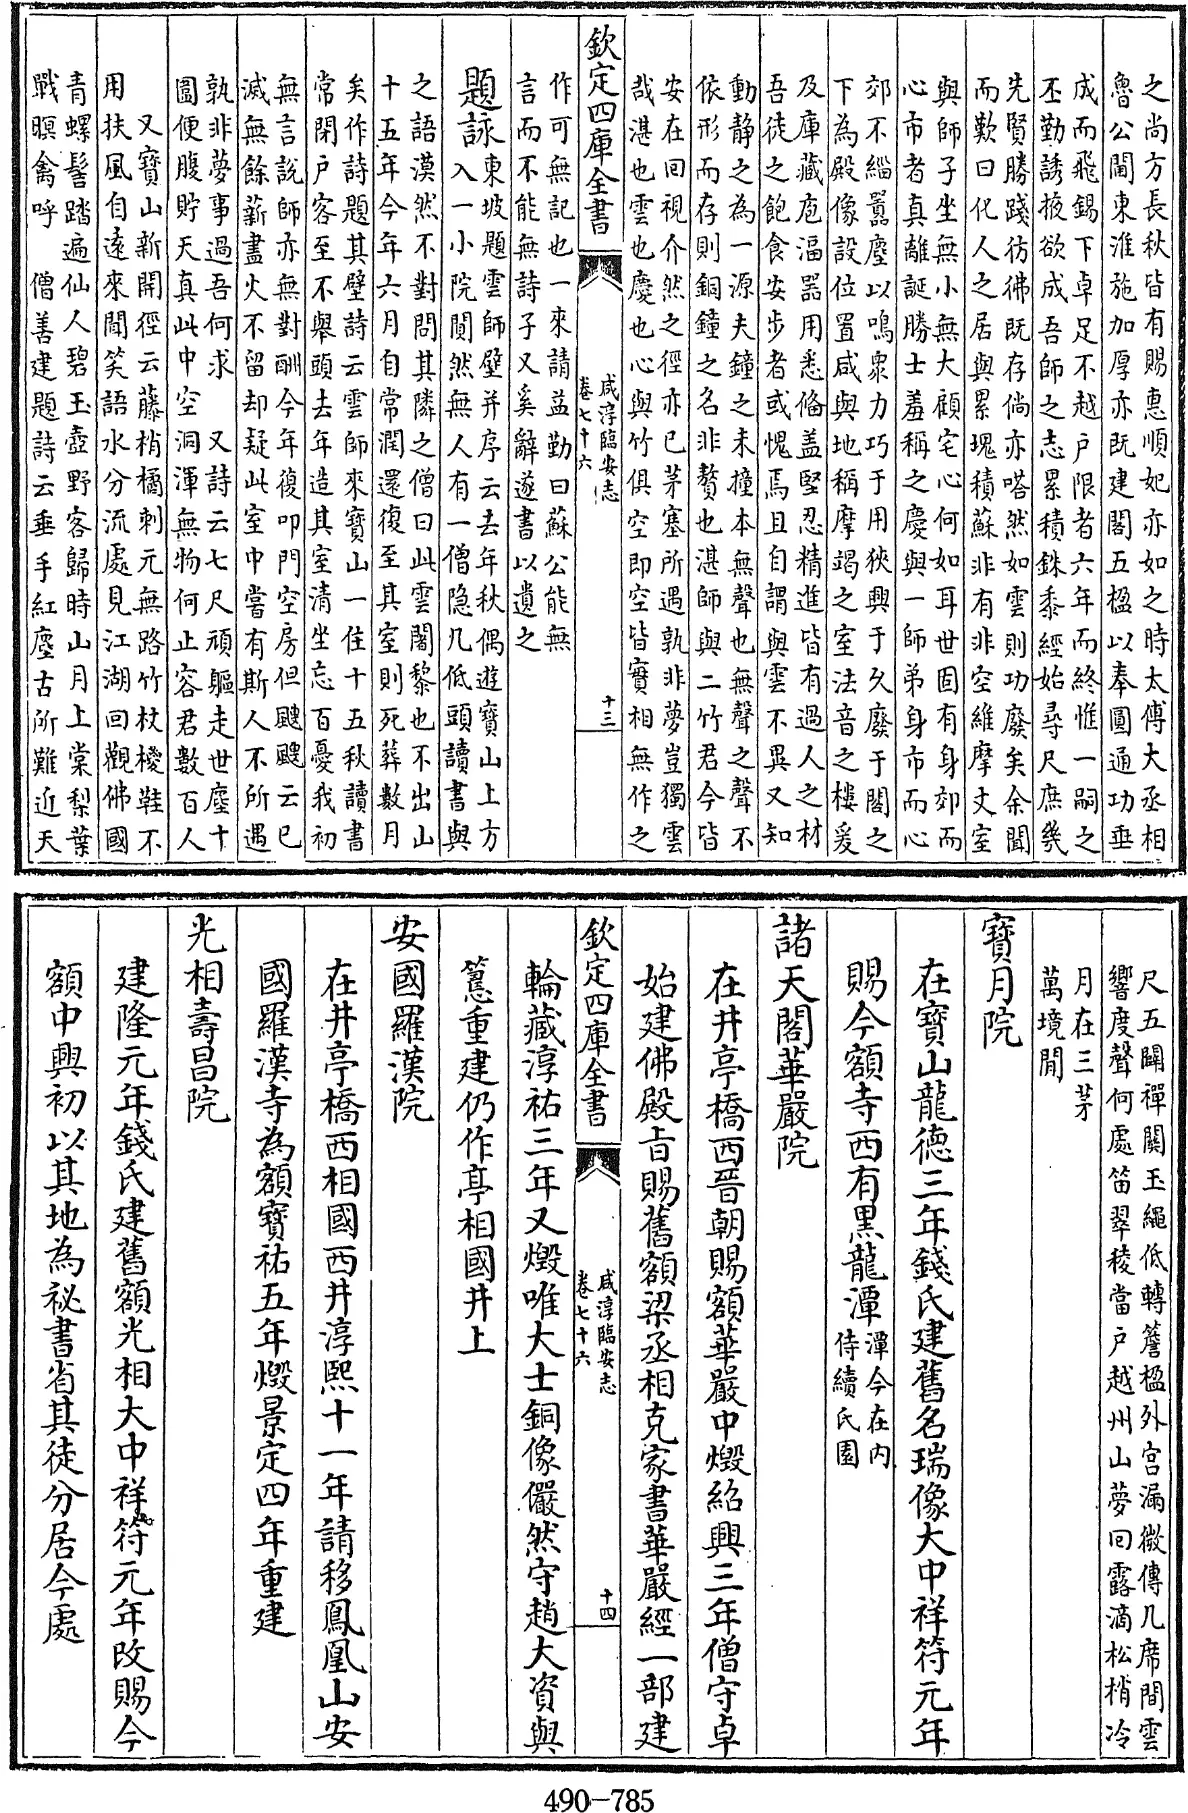 之尚方長秋皆有賜惠順妃亦如之時太傅大丞相
魯公閫東淮施加厚亦既建閣五楹以奉圓通功垂
成而飛錫下卓足不越户限者六年而終惟一嗣之
丕勤誘掖欲成吾師之志累積銖黍經始尋尺庶幾
先賢勝踐彷彿既存倘亦嗒然如雲則功廢矣余聞
而歎曰化人之居與累瑰積蘇非有非空維摩丈室
與師子坐無小無大顧宅心何如耳世固有身郊而
心市者真離誕勝士羞稱之慶與一師弟身市而心
郊不緇囂塵以鳴衆力巧于用狹興于久廢于閣之
下為殿像設位置咸與地稱摩竭之室法音之樓爰
及庫藏庖湢器用悉俻盖堅忍精進皆有過人之材
吾徒之飽食安步者或愧焉且自謂與雲不異又知
動静之為一源夫鐘之未撞本無聲也無聲之聲不
依形而存則銅鐘之名非贅也湛師與二竹君今皆
安在回視介然之徑亦已茅塞所遇孰非夢豈獨雲
哉湛也雲也慶也心與竹俱空即空皆實相無作之
欽定四庫全書
咸淳臨安志
卷七十六
十三
作可無記也一來請益勤曰蘇公能無
言而不能無詩子又奚辭遂書以遺之
題詠
東坡題雲師壁并序云去年秋偶遊寶山上方
入一小院閴然無人有一僧隐几低頭讀書與
之語漠然不對問其隣之僧曰此雲闍黎也不出山
十五年今年六月自常潤還復至其室則死葬數月
矣作詩題其壁詩云雲師來寶山一住十五秋讀書
常閉户客至不舉頭去年造其室清坐忘百憂我初
無言說師亦無對酬今年復叩門空房但颼颼云已
滅無餘薪盡火不留却疑此室中嘗有斯人不所遇
孰非夢事過吾何求 又詩云七尺頑軀走世塵十
圍便腹貯天真此中空洞渾無物何止容君數百人
又寶山新開徑云藤梢橘刺元無路竹杖椶鞋不
用扶風自遠來聞笑語水分流處見江湖回觀佛國
青螺髻踏遍仙人碧玉壺野客歸時山月上棠梨葉
戰暝禽呼 僧善建題詩云垂手紅塵古所難近天
尺五闢禪關玉繩低轉簷楹外宫漏微傳几席間雲
響度聲何處笛翠稜當户越州山夢回露滴松梢冷
月在三茅
萬境閒
寶月院
在寶山龍徳三年錢氏建舊名瑞像大中祥符元年
賜今額寺西有黒龍潭
潭今在内
侍續氏園
諸天閣華嚴院
在井亭橋西晉朝賜額華嚴中燬紹興三年僧守卓
始建佛殿㫖賜舊額梁丞相克家書華嚴經一部建
欽定四庫全書
咸淳臨安志
卷七十六
十四
輪藏淳祐三年又燬唯大士銅像儼然守趙大資與
𥲅重建仍作亭相國井上
安國羅漢院
在井亭橋西相國西井淳熙十一年請移鳳凰山安
國羅漢寺為額寶祐五年燬景定四年重建
光相壽昌院
建隆元年錢氏建舊額光相大中祥符元年改賜今
額中興初以其地為祕書省其徒分居今處
490-785